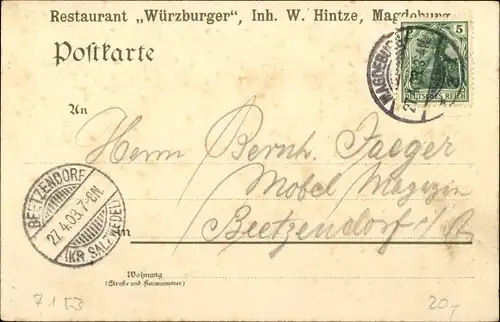 Restaurant „Würzburger", Inh. W. Hintze, Magdeburg
Postkarte
5
DEUTSCHES REICH
MAGDEBURG
An
Herrn Bernh. Jaeger
Möbel Magazin
Beetzendorf i/A
BEETZENDORF
27.4.03.7-8N.
(KR. SALZWEDEL)
Wohnung
(Straße und Hausnummer)
20,-